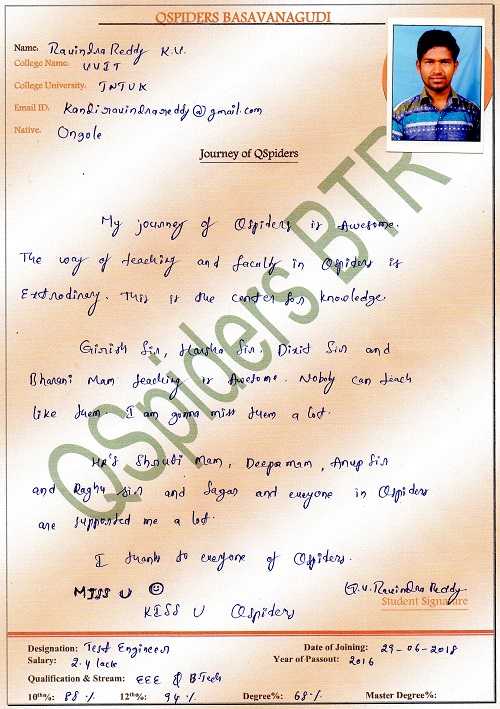 QSPIDERS BASAVANAGUDI
Name: Ravindra Reddy K.V.
College Name: VVIT
College University: JNTUK
Email ID: kandiravindrareddy@gmail.com
Native: Ongole
Journey of QSpiders
My journey of Qspiders is Awesome.
The way of teaching and faculty in Qspiders is
Extrodinary. This is the center for knowledge.
Girish Sir, Harsha Sir, Dixit Sir and
Bharani Mam teaching is Awesome. Nobody can teach
like them. I am gonna miss them a lot.
HR's Shruti Mam, Deepa mam, Anup Sir
and Raghu sir and Sagar and everyone in Qspiders
are supported me a lot.
I thanks to everyone of Qspiders.
MISS U ☺
KISS U Qspiders
K.V. Ravindra Reddy
Student Signature
QSpiders BTR
Designation: Test Engineer
Date of Joining: 29-06-2018
Salary: 2.4 lack
Year of Passout: 2016
Qualification & Stream: EEE & B.Tech
10th%: 88 % 12th%: 94 % Degree%: 68 % Master Degree%: